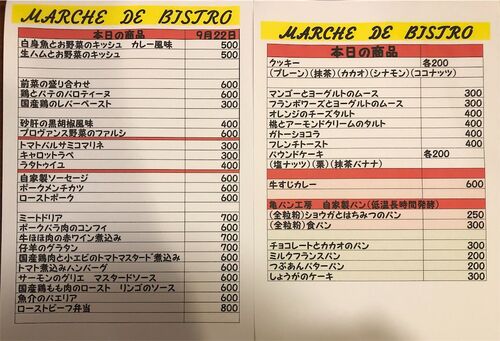 MARCHE DE BISTRO
本日の商品 9月22日
白身魚とお野菜のキッシュ カレー風味 500
生ハムとお野菜のキッシュ 500
前菜の盛り合わせ 600
鶏とパテのバロティーヌ 600
国産鶏のレバーペースト 300
砂肝の黒胡椒風味 400
プロヴァンス野菜のファルシ 600
トマトバルサミコマリネ 300
キャロットラペ 300
ラタトゥイユ 400
自家製ソーセージ 600
ポークメンチカツ 600
ローストポーク 600
ミートドリア 700
ポークバラ肉のコンフィ 600
牛ほほ肉の赤ワイン煮込み 700
仔羊のグラタン 700
国産鶏肉と小エビのトマトマスタード煮込み 600
トマト煮込みハンバーグ 600
サーモンのグリエ マスタードソース 600
国産鶏もも肉のロースト リンゴのソース 600
魚介のパエリア 600
ローストビーフ弁当 800
MARCHE DE BISTRO
本日の商品
クッキー 各200
(プレーン)(抹茶)(カカオ)(シナモン)(ココナッツ)
マンゴーとヨーグルトのムース 300
フランボワーズとヨーグルトのムース 300
オレンジのチーズタルト 400
桃とアーモンドクリームのタルト 400
ガトーショコラ 400
フレンチトースト 400
パウンドケーキ 各200
(塩ナッツ)(栗)(抹茶バナナ)
牛すじカレー 600
亀パン工房 自家製パン(低温長時間発酵)
(全粒粉)ショウガとはちみつのパン 250
(全粒粉)食パン 300
チョコレートとカカオのパン 300
ミルクフランスパン 200
つぶあんバターパン 200
しょうがのケーキ 300